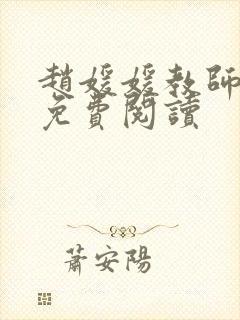 趙媛媛教師
免費閱讀
蕭安陽